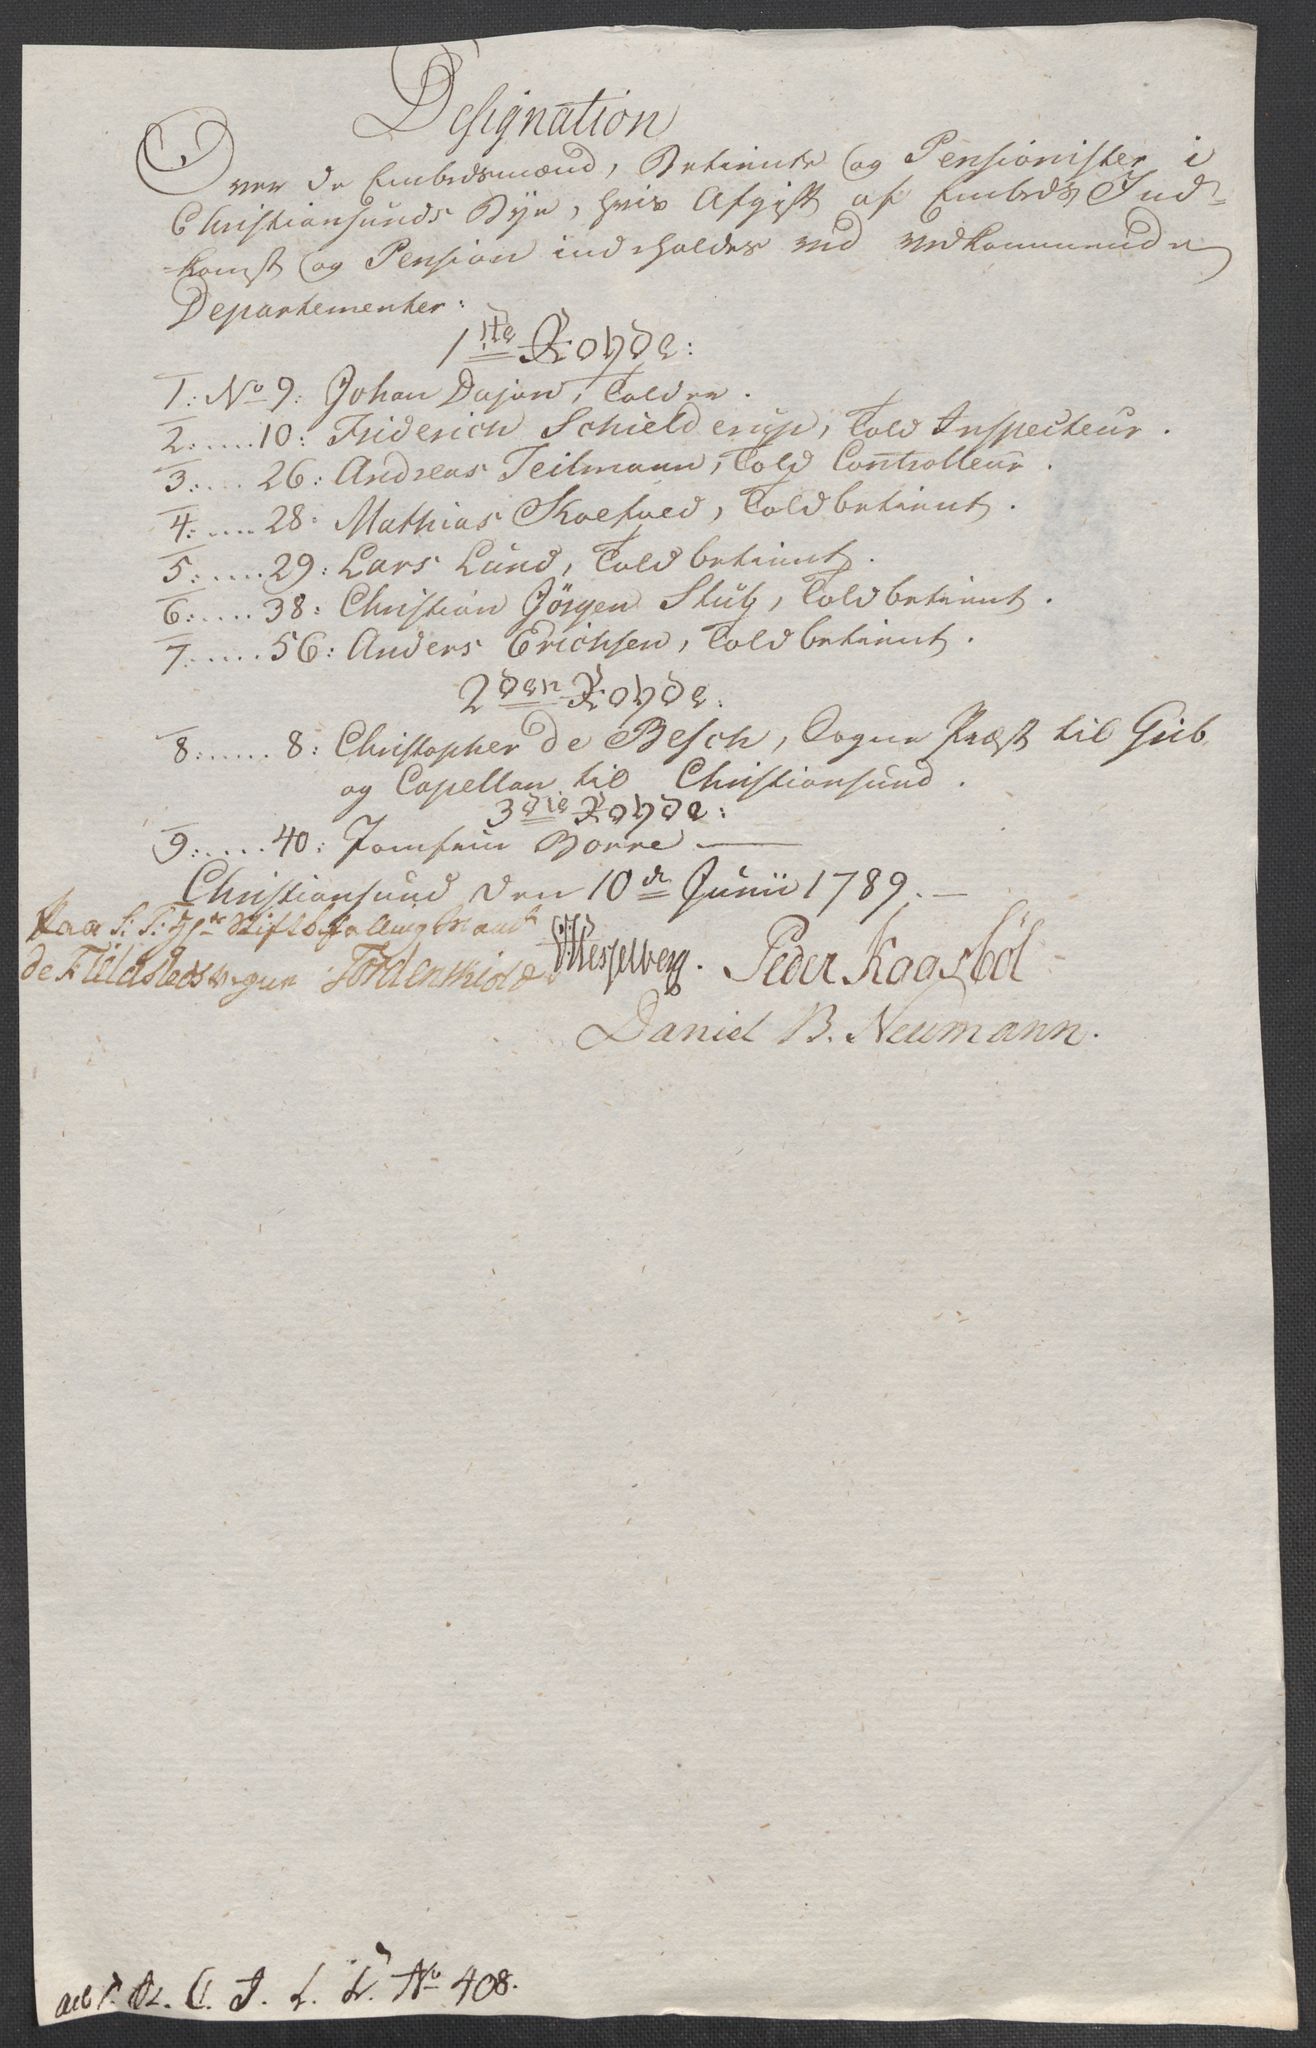 Designation
Over de Embedsmænd, Betiente og Pensionister i
Christiansunds Bye, hvis Afgift af Embeds Ind=
=komst og Pension indeholdes ved vedkommende
Departementer:
1ste Royde:
1: No 9: Johan Dajon, Tolder.
2: .... 10: Friderich Schielderup, Told Inspecteur.
3: .... 26: Andreas Teilmann, Told Controlleur.
4: .... 28: Mathias Skoetved, Toldbetient.
5: .... 29: Lars Lund, Toldbetient.
6: .... 38: Christian Jörgen Stub, Toldbetient.
7: .... 56: Anders Erichsen, Toldbetient.
2den Royde:
8: .... 8: Christopher de Besch, Sogne Præst til Grib
og Capellan til Christiansund.
3die Royde:
9: .... 40: Jomfrue Borre
Christiansund den 10de Junii 1789.
Paa S: T: Hr Stiftbefalingsmand
de Fieldsteds vegne Tordenskiold Hesselberg. Peder Kaasböl
Daniel B. Neumann.
ad R. C. J. L. L. No 408.